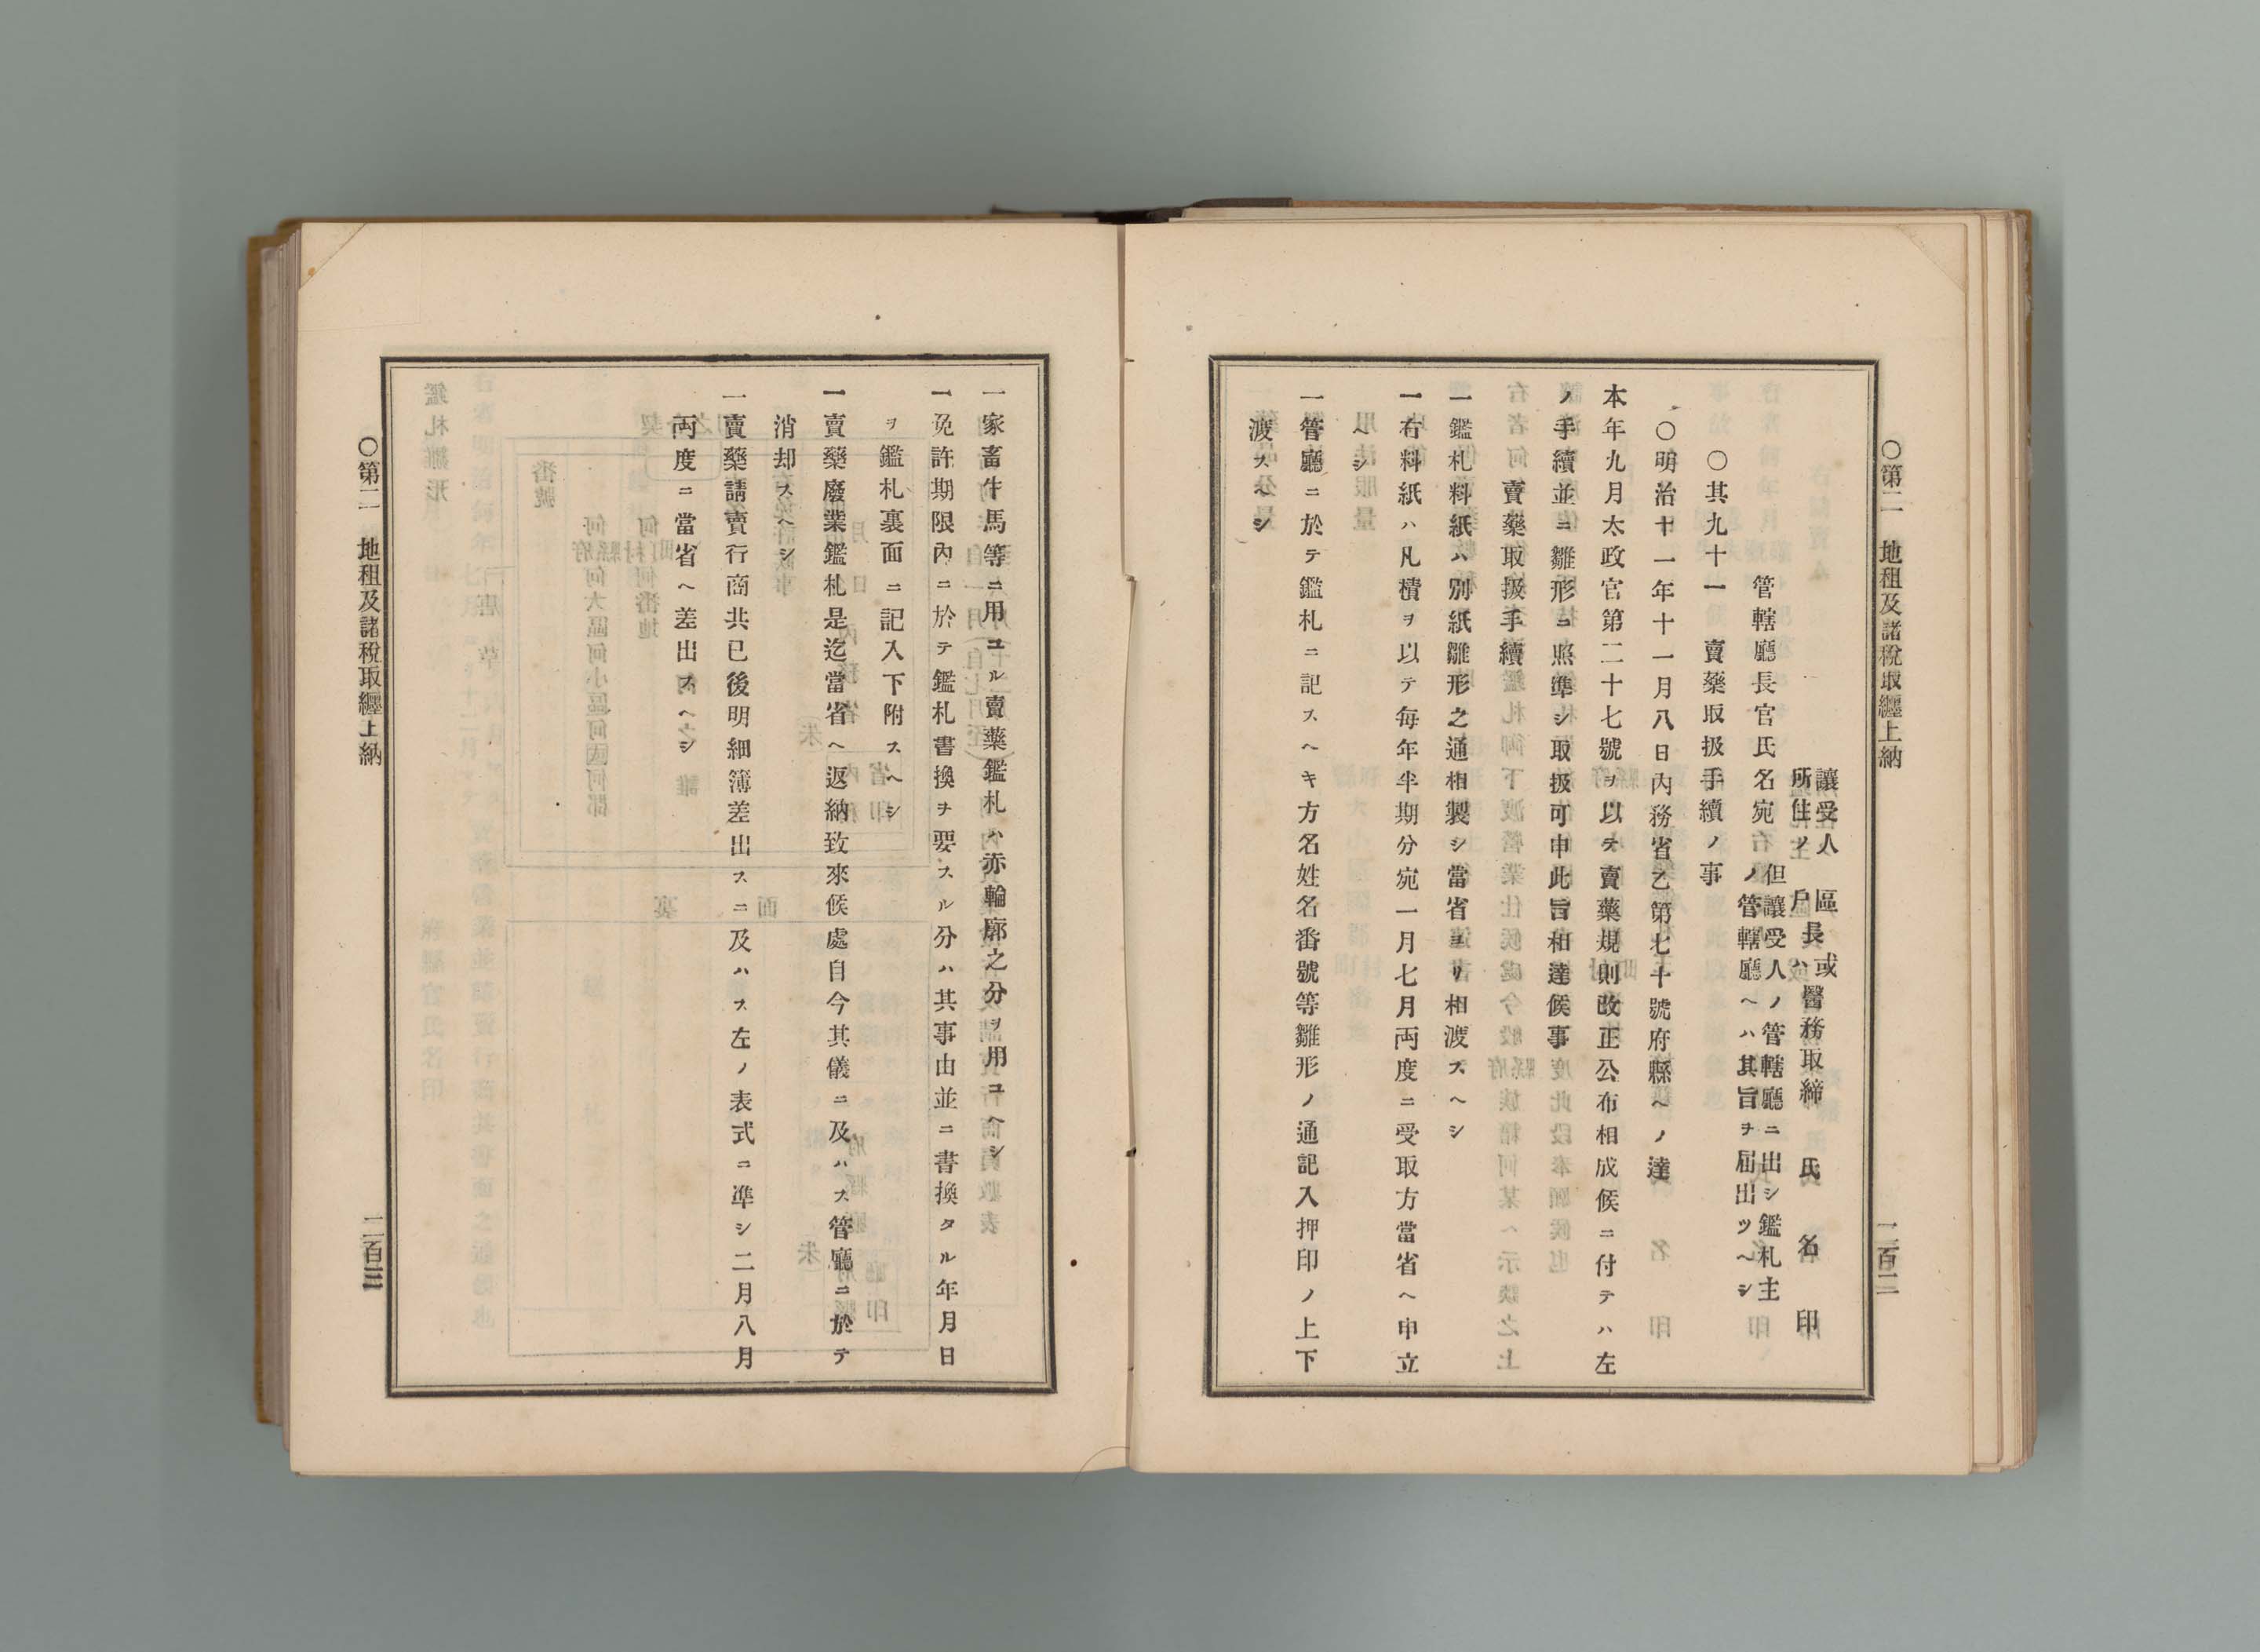 〇第二　地租及諸稅取纒上納
二百二
讓受人　區
所住ノ　戶長或ハ醫務取締　氏　名　印
管轄廳長官氏名宛
但讓受人ノ管轄廳ニ出シ鑑札主
ノ管轄廳ヘハ其旨ヲ屆出ツヘシ
〇其九十一　賣藥取扱手續ノ事
〇明治十一年十一月八日內務省乙第七十號府縣ヘノ達
本年九月太政官第二十七號ヲ以テ賣藥規則改正公布相成候ニ付テハ左
ノ手續並ニ雛形ニ照準シ取扱可申此旨相達候事
賣藥取扱手續
一鑑札料紙ハ別紙雛形之通相製シ當省ヨリ相渡スヘシ
一右料紙ハ凡積ヲ以テ每年半期分宛一月七月両度ニ受取方當省ヘ申立
ヘシ
一管廳ニ於テ鑑札ニ記スヘキ方名姓名番號等雛形ノ通記入押印ノ上下
渡スヘシ
一家畜牛馬等ニ用ユル賣藥鑑札ハ赤輪廓之分ヲ用ユヘシ
一免許期限內ニ於テ鑑札書換ヲ要スル分ハ其事由並ニ書換タル年月日
ヲ鑑札裏面ニ記入下附スヘシ
一賣藥廢業鑑札是迄當省ヘ返納致來候處自今其儀ニ及ハス管廳ニ於テ
消却スヘシ
一賣藥請賣行商共已後明細簿差出スニ及ハス左ノ表式ニ準シ二月八月
両度ニ當省ヘ差出スヘシ
〇第二　地租及諸稅取纒上納
二百三